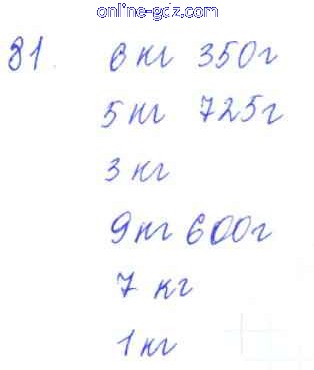 online-gdz.com
81. 6 кг 350г
5 кг 725г
3 кг
9кг 600г
7 кг
1 кг